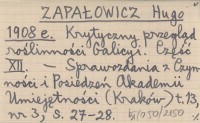 ZAPAŁOWICZ Hugo
1908 e. Krytyczny przegląd
roślinności Galicyi. Część
XII. — Sprawozdania z Czyn-
ności i Posiedzeń Akademii
Umiejętności (Kraków) t. 13,
nr 3, s. 27-28.